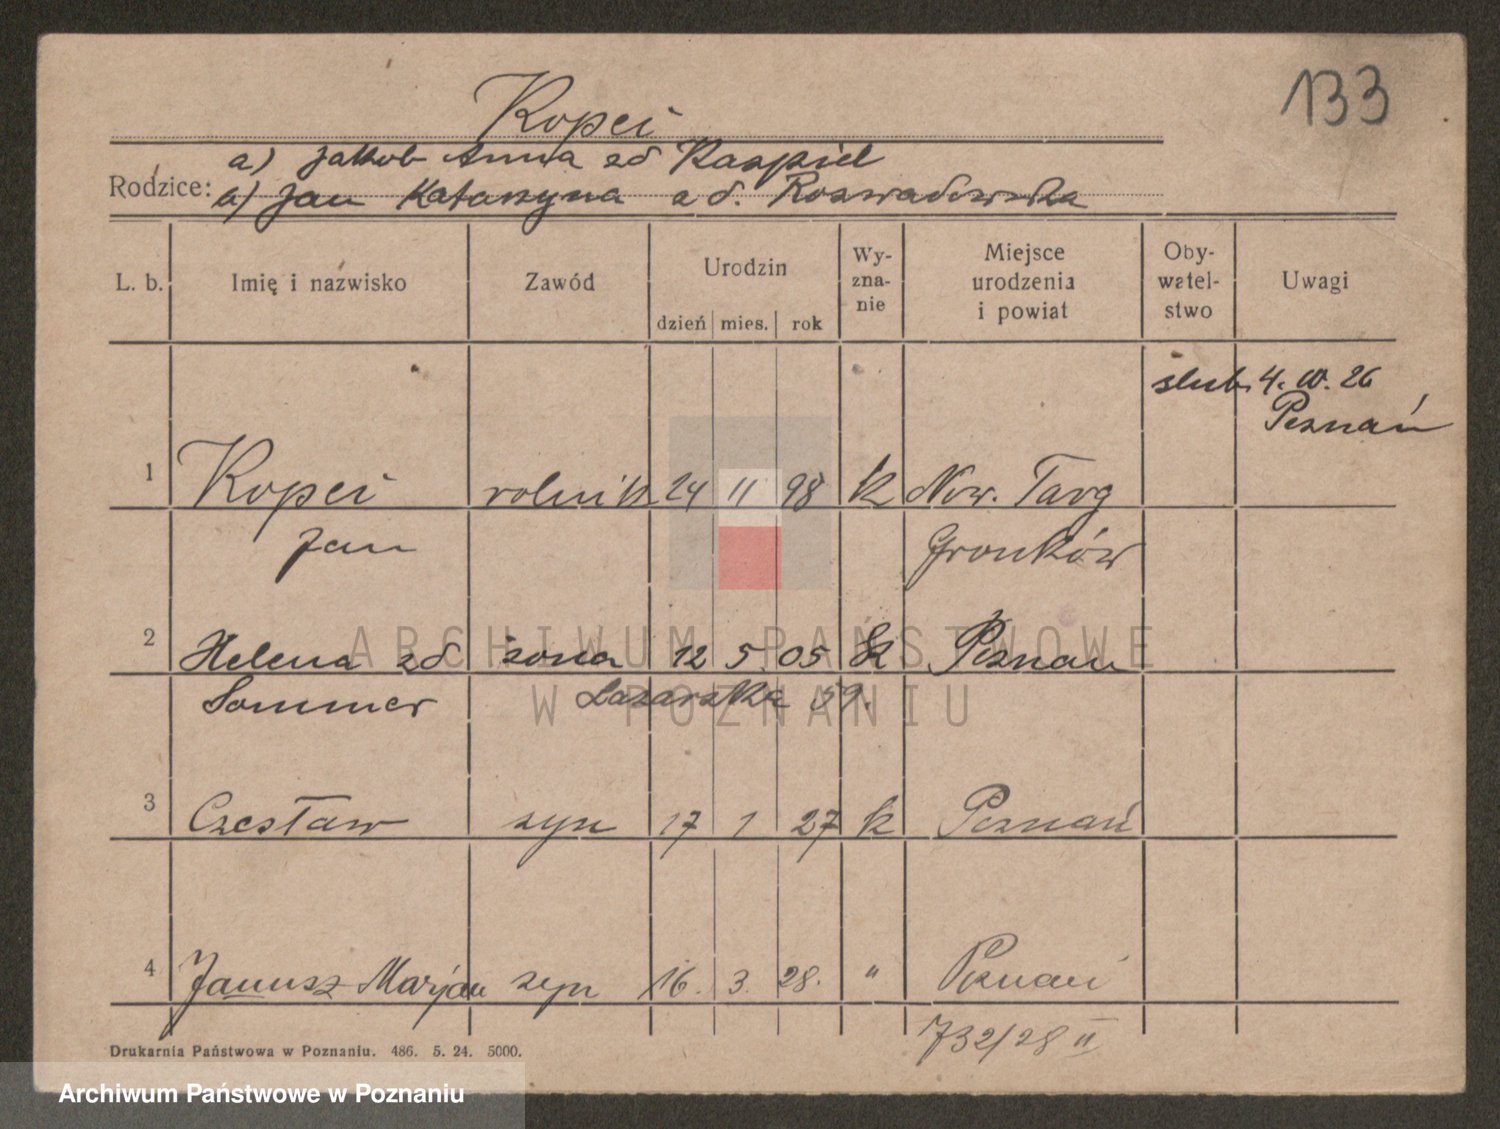 133
Kopeć
a) Jakob Anna zd Kaspiel
Rodzice: a) Jan Katarzyna zd. Rozwadowska
L. b. Imię i nazwisko Zawód Urodzin dzień mies. rok Wy-zna-nie Miejsce urodzenia i powiat Oby-watel-stwo Uwagi
ślub. 4. IV. 26
Poznań
1 Kopeć rolnik 24 11 98 k Now. Targ
Jan Gronków
2 Helena zd żona 12 5. 05 k Poznań
Sommer Łazarska 59.
3 Czesław syn 17 1 27 k Poznań
4 Janusz Marjan syn 16. 3. 28. " Poznań
732/28 II
Drukarnia Państwowa w Poznaniu. 486. 5. 24. 5000.
ARCHIWUM PAŃSTWOWE
W POZNANIU
Archiwum Państwowe w Poznaniu